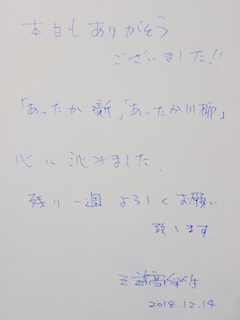 本日もありがとう
ございました!!
「あったか噺」「あったか川柳」
心に沁みました.
残り一週 よろしくお願い
致します.
2018.12.14